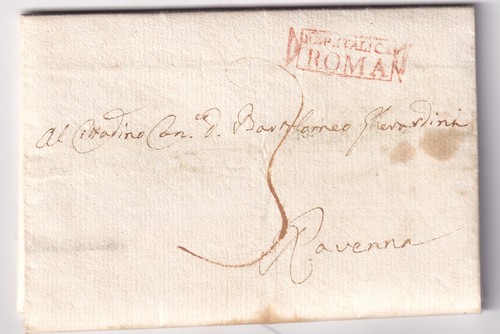 REP. ITALICA
ROMA
3
Al Cittadino Can.co D. Bartolomeo Gherardini
Ravenna